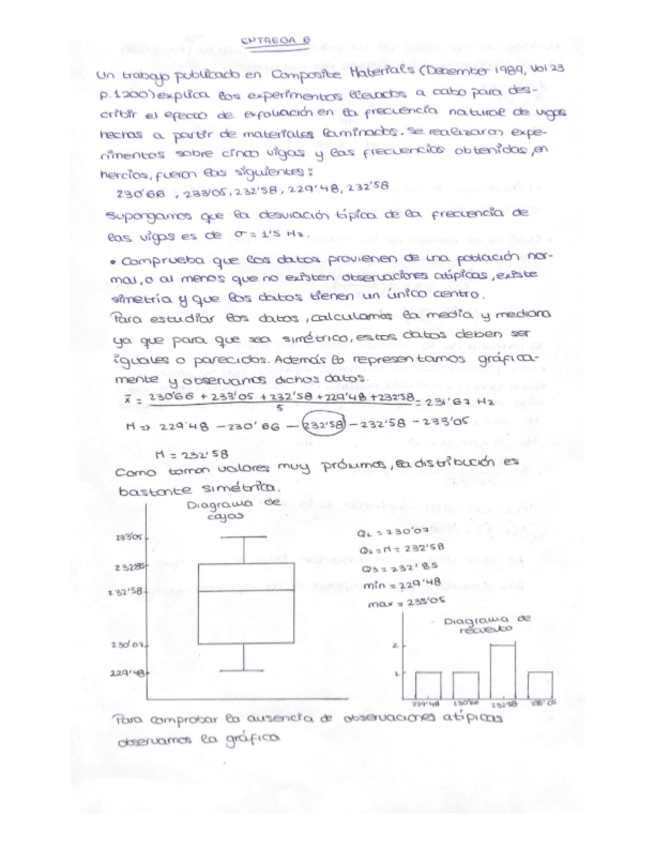 ENTREGA 6
Un trabajo publicado en Composite Materials (December 1989, Vol 23
p. 1200) explica los experimentos llevados a cabo para des-
cribir el efecto de exfoliación en la frecuencia natural de vigas
hechas a partir de materiales laminados. Se realizaron expe-
rimentos sobre cinco vigas y las frecuencias obtenidas, en
hercios, fueron las siguientes:
230'66, 233'05, 232'58, 229'48, 232'58
Supongamos que la desviación típica de la frecuencia de
las vigas es de σ = 1'5 Hz.
• Comprueba que los datos provienen de una población nor-
mal, o al menos que no existen observaciones atípicas, existe
simetría y que los datos tienen un único centro.
Para estudiar los datos, calculamos la media y mediana
ya que para que sea simétrico, estos datos deben ser
iguales o parecidos. Además lo representamos gráfica-
mente y observamos dichos datos.
x̄ = 230'66 + 233'05 + 232'58 + 229'48 + 232'58 / 5 = 231'67 Hz
M => 229'48 - 230'66 - 232'58 - 232'58 - 233'05
M = 232'58
Como toman valores muy próximos, la distribución es
bastante simétrica.
Diagrama de
cajas
233'05
232'85
232'58
230'07
229'48
Q1 = 230'07
Q2 = M = 232'58
Q3 = 232'85
min = 229'48
max = 233'05
Diagrama de
recuento
2
1
229'48 230'66 232'58 233'05
Para comprobar la ausencia de observaciones atípicas
observamos la gráfica